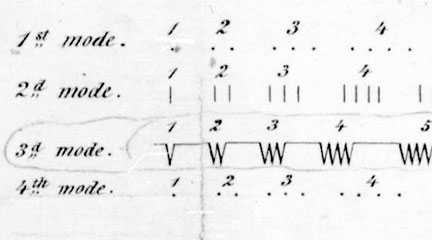 1st mode. 1 2 3 4
2d mode. 1 2 3 4
3d mode. 1 2 3 4 5
4th mode. 1 2 3 4